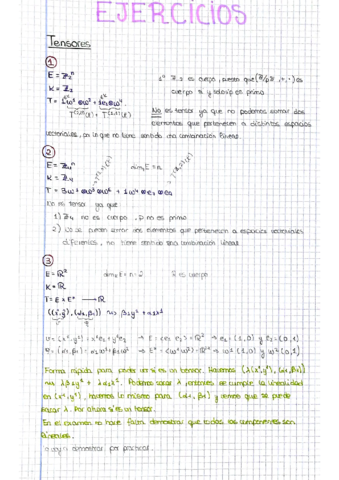 EJERCICIOS
Tensores
1
E = Z₂ⁿ
K = Z₂
1º Z₂ es cuerpo, puesto que (Z/pZ, +, ·) es
cuerpo si y solo si p es primo
No es tensor ya que no podemos sumar dos
elementos que pertenecen a distintos espacios
vectoriales, por lo que no tiene sentido la combinación lineal.
2
E = Z₄ⁿ
K = Z₄
T = 3ω⁴⊗ω³⊗ω⁶ + 1ω⁴⊗e₂⊗e₃
No es tensor ya que
1) Z₄ no es cuerpo, p no es primo
2) No se pueden sumar dos elementos que pertenecen a espacios vectoriales
diferentes, no tiene sentido una combinación lineal.
3
E = R² dim E = n = 2 R es cuerpo
K = R
T = E × E* → R
Forma rápida para poder ver si es un tensor. Hacemos (λ(x¹,y²), (α₁,β₁))
Podemos sacar λ, entonces se cumple la linealidad
en (x¹,y²), hacemos lo mismo para (α₁, β₁) y vemos que se puede
sacar λ. Por ahora sí es un tensor.
En el examen no hace falta demostrar que todas las componentes son
lineales.
demostrar por practicar.